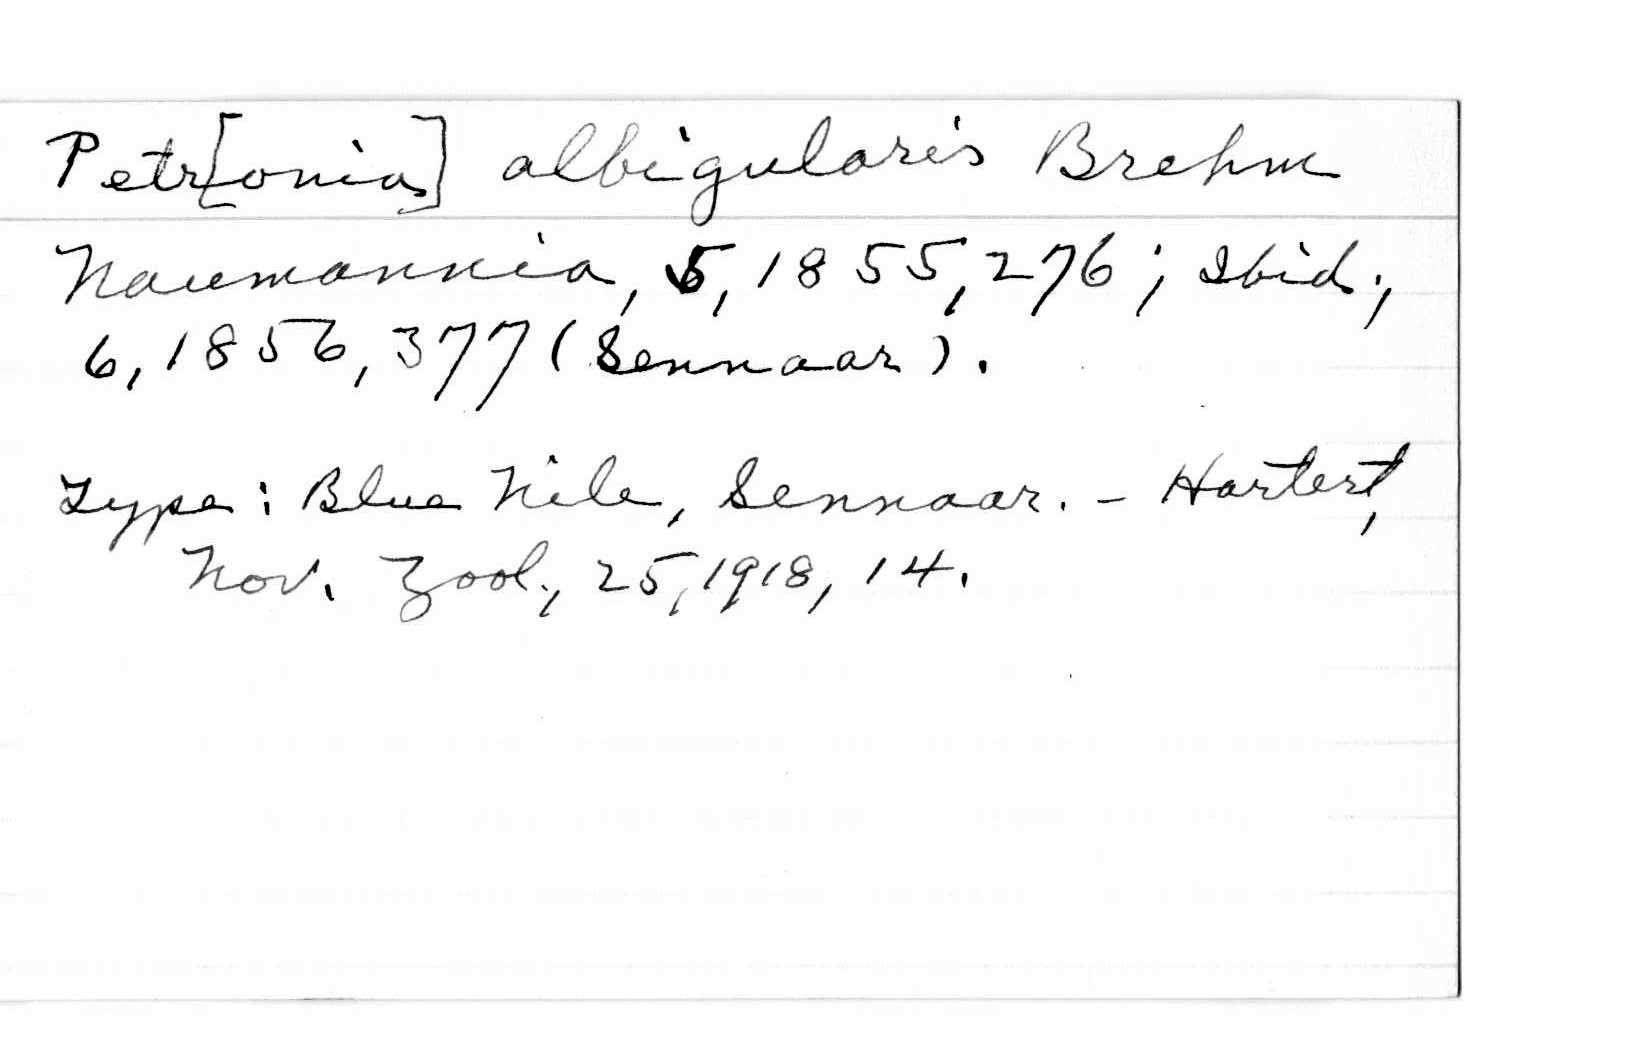 Petr[onia] albigularis Brehm
Naumannia, 5, 1855, 276; Ibid.,
6, 1856, 377 (Sennaar).
Type: Blue Nile, Sennaar. - Hartert,
Nov. Zool., 25, 1918, 14.